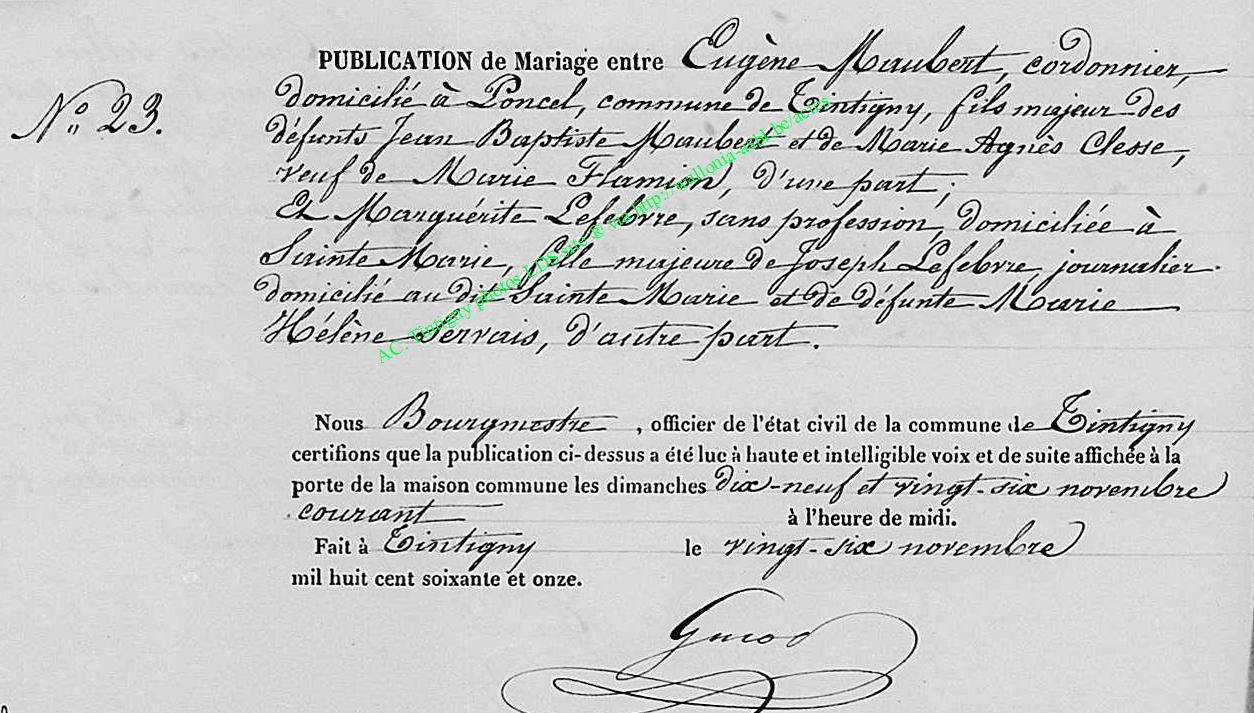 PUBLICATION de Mariage entre Eugène Maubert, cordonnier,
N° 23.
domicilié à Poncel, commune de Tintigny, fils majeur des
défunts Jean Baptiste Maubert et de Marie Agnès Clesse,
veuf de Marie Flamion, d'une part;
Et Marguérite Lefebvre, sans profession, domiciliée à
Sainte Marie, fille majeure de Joseph Lefebvre, journalier
domicilié au dit Sainte Marie et de défunte Marie
Hélène Servais, d'autre part.
AC. Tintigny photos LDS site ® via http://wallonia-asbl-be/actes
Nous Bourgmestre, officier de l'état civil de la commune de Tintigny
certifions que la publication ci-dessus a été lue à haute et intelligible voix et de suite affichée à la
porte de la maison commune les dimanches dix-neuf et vingt-six novembre
courant à l'heure de midi.
Fait à Tintigny le vingt-six novembre
mil huit cent soixante et onze.